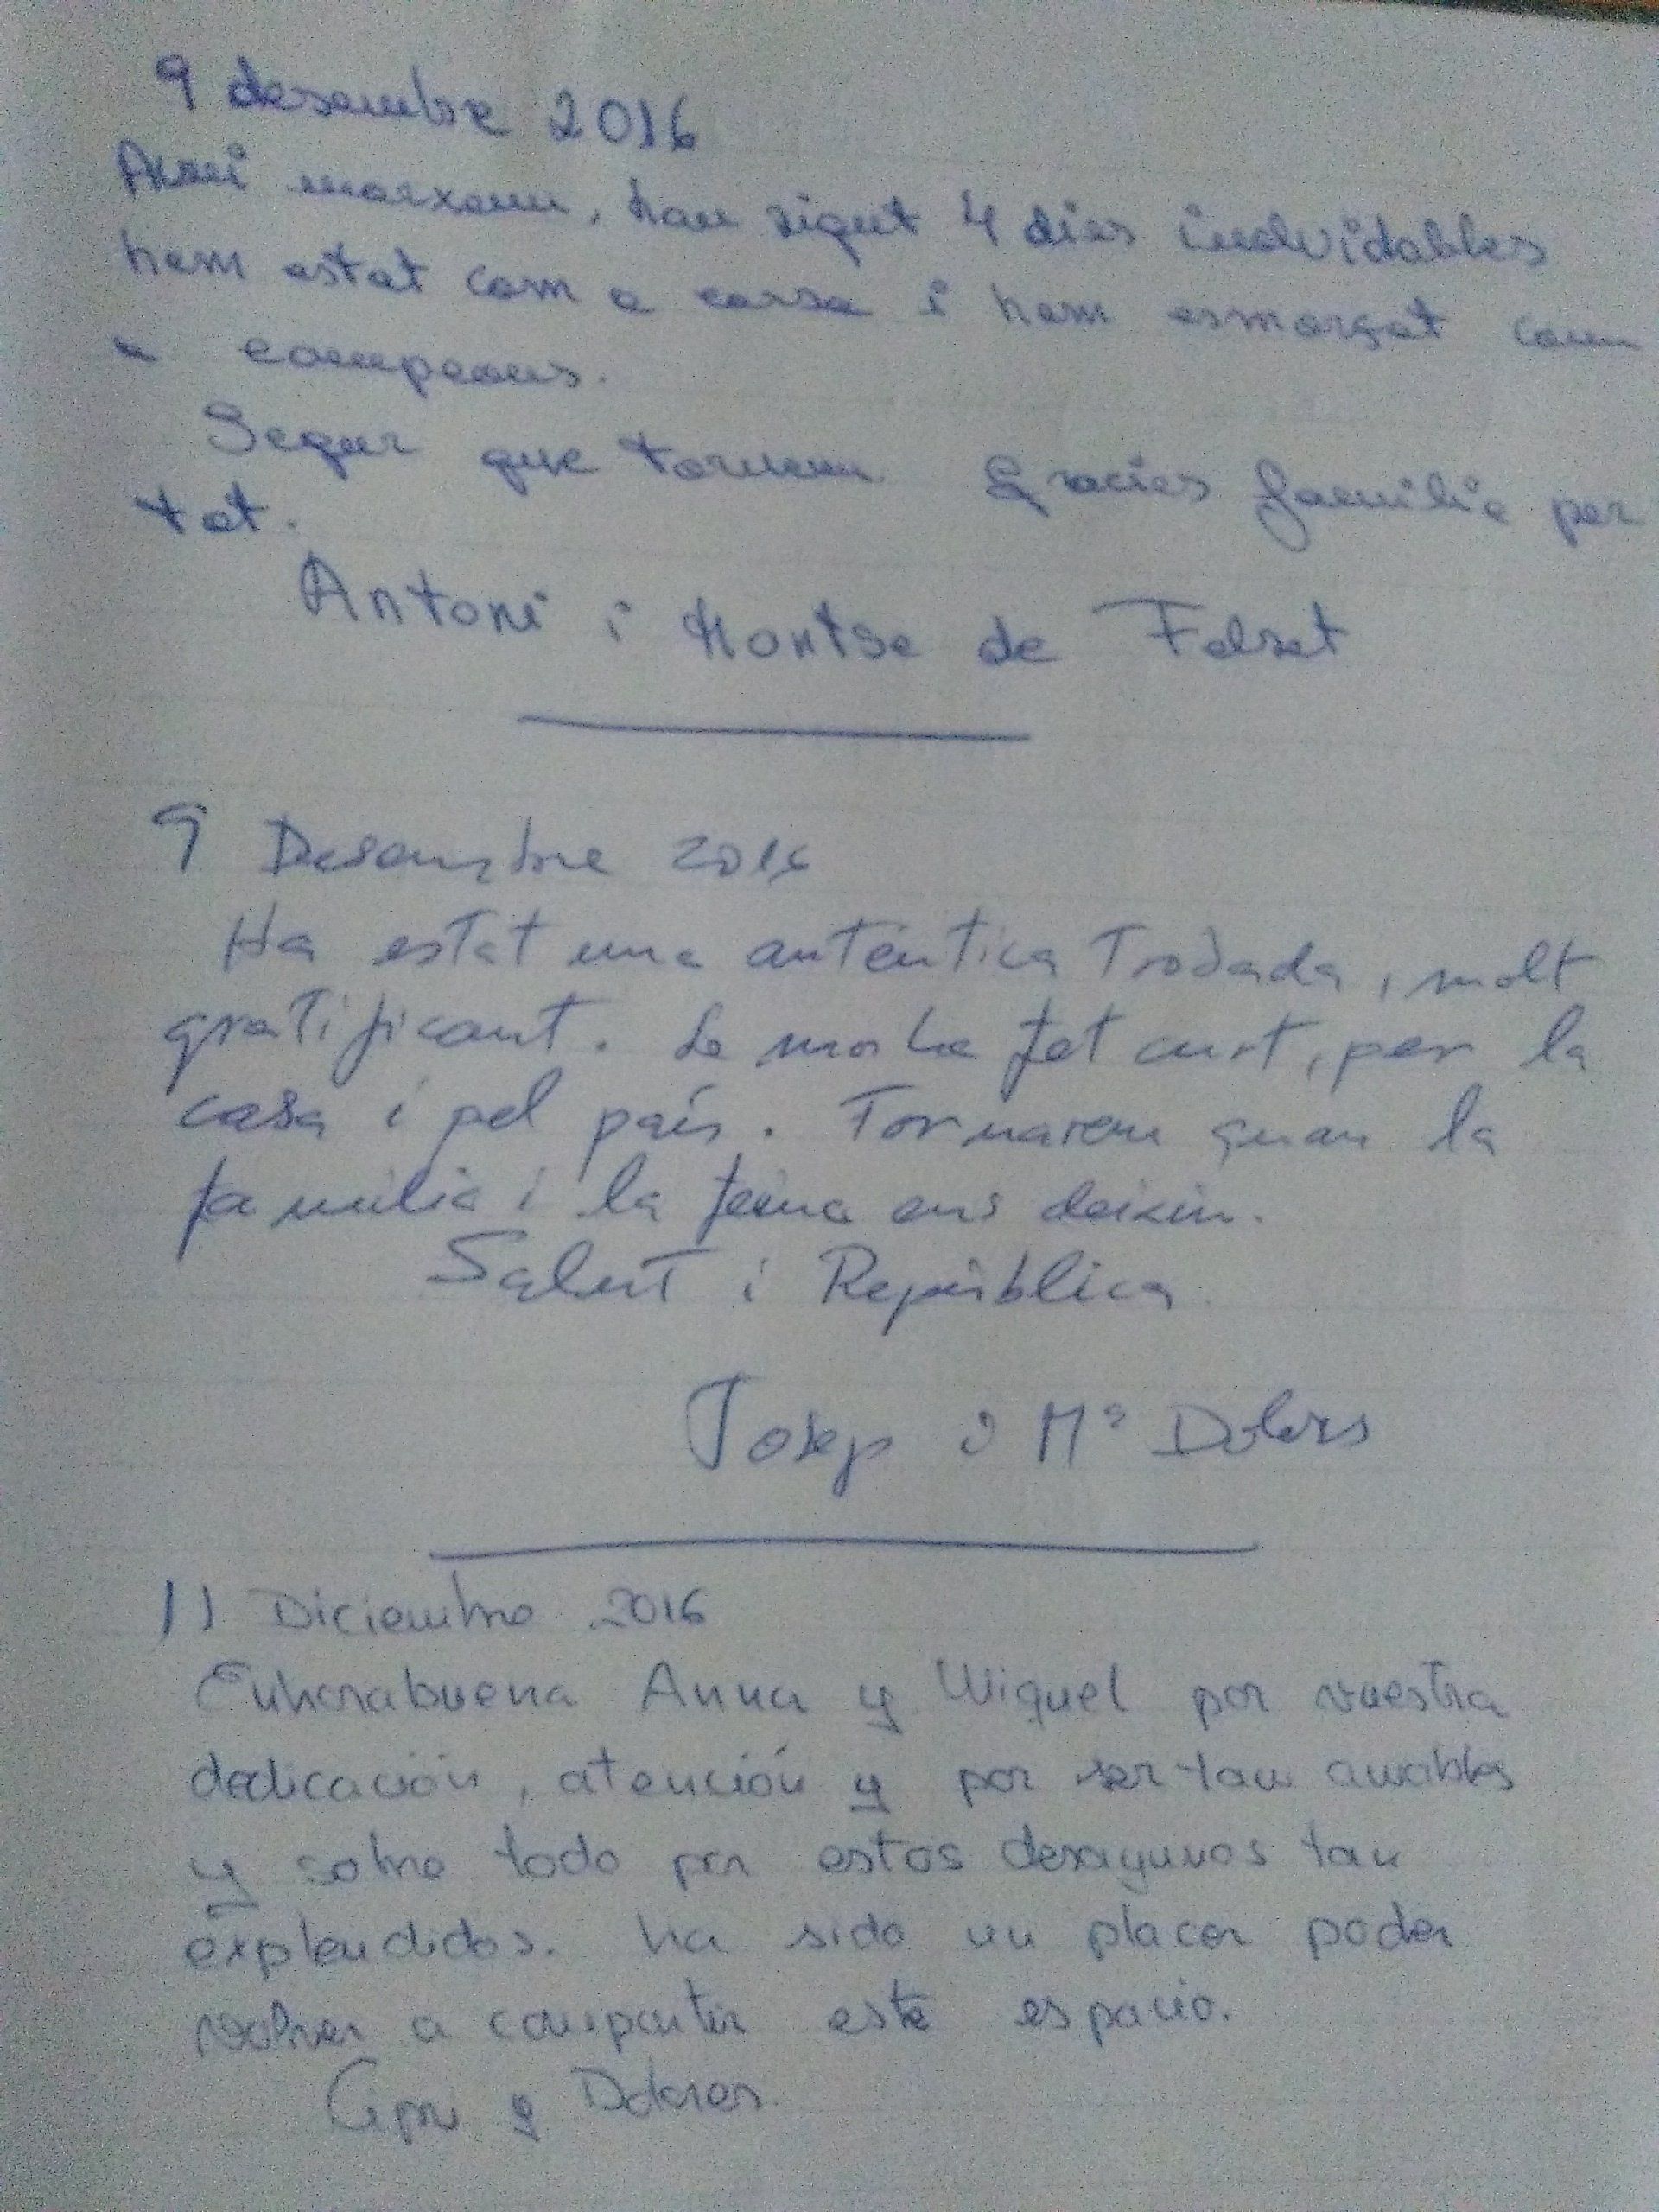 9 desembre 2016
Avui marxem, han sigut 4 dies inolvidables
hem estat com a casa i hem esmorçat com
a campeons.
Segur que tornem. Gracies familia per
tot.
Antoni i Montse de Falset
9 Desembre 2016
Ha estat una autèntica Trobada, molt
gratificant. Se mos ha fet curt, per la
casa i pel país. Tornarem quan la
familia i la feina ens deixin.
Salut i República
Josep i Mª Dolors
11 Diciembre 2016
Enhorabuena Anna y Miquel por vuestra
dedicación, atención y por ser tan amables
y sobre todo por estos desayunos tan
explendidos. ha sido un placer poder
volver a compartir este espacio.
Cipri y Dolores.